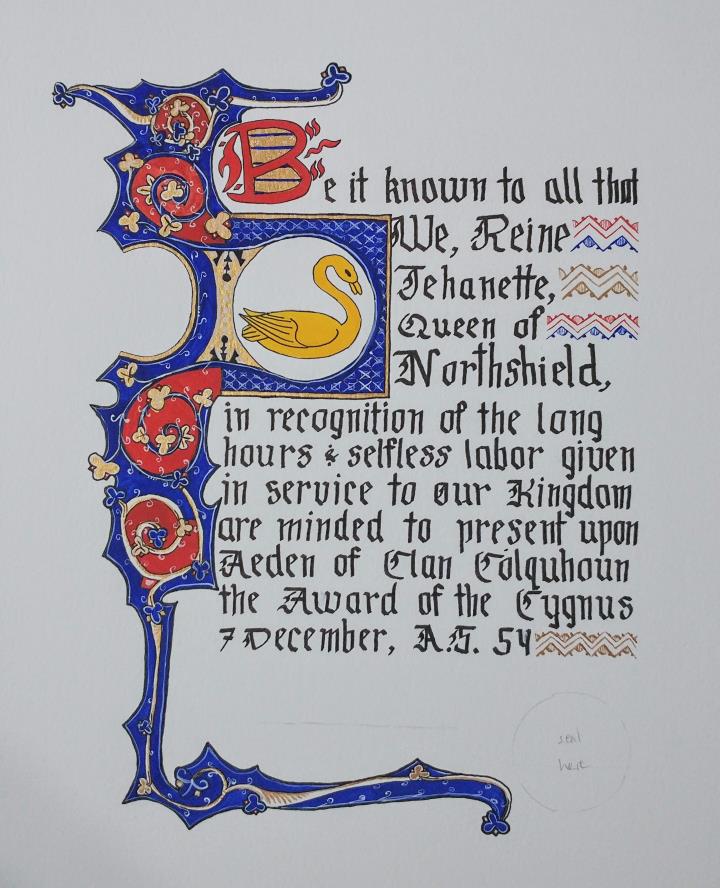 Be it known to all that
We, Reine
Jehanette,
Queen of
Northshield,
in recognition of the long
hours & selfless labor given
in service to our Kingdom
are minded to present upon
Aeden of Clan Colquhoun
the Award of the Cygnus
7 December, A.S. 54
seal
here